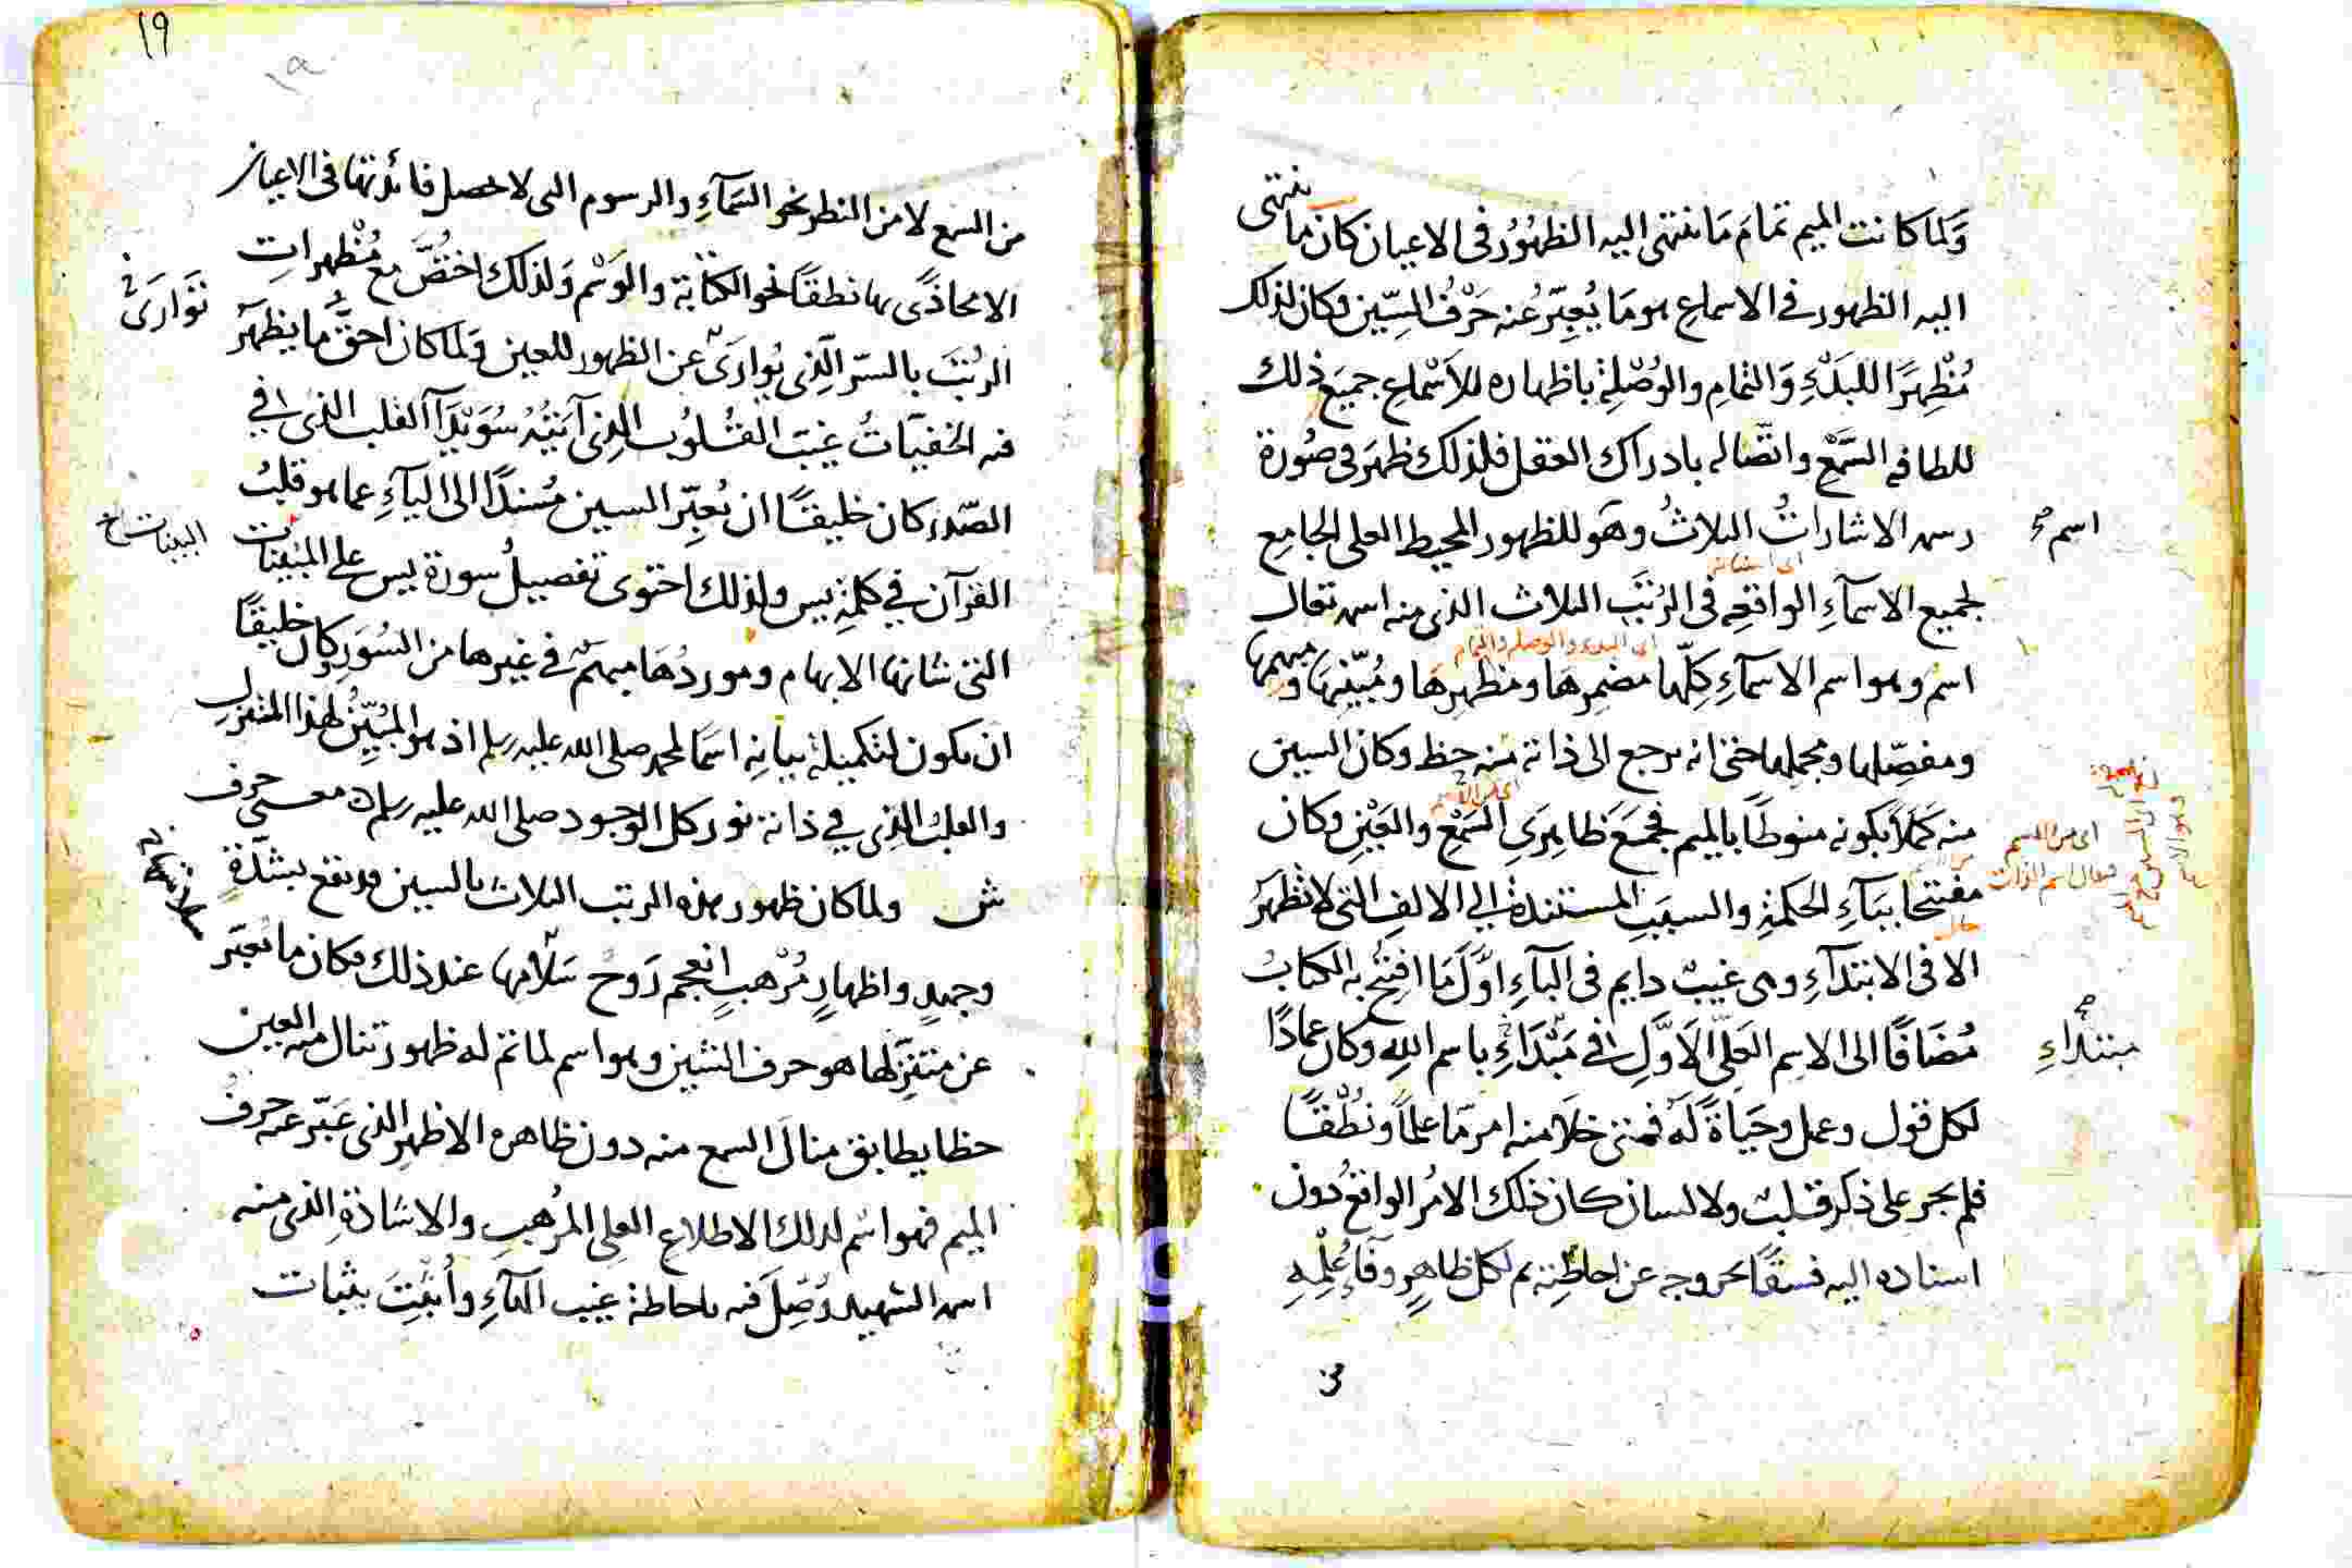 وَلَمَا كانت الميم تمامَ مَا ينتهى اليه الظهُوُر فى الاعيان كان ما ينتهى
اليه الظهور فى الاسماعِ هو مَا يُعبِّرُ عنه حَرْفُ السِّين وكان لذلك
مُظْهِرًا للبَدْءِ وَالتمامِ والوُصْلِة باظهاره للأَسْماع جميعَ ذلك
للطافه السَّمْعِ واتّصاله بادراك العقل فلذلك ظهرَ فى صُورة
رسمه الاشاراتُ الثلاثُ وهَو للظهور المحيط العلى الجامِع
اسم صح
لجميع الاسمآءِ الواقعِه فى الرُتَب الثلاث الذى منه اسمه تعالى
اى البدء والوصلة والتمام
اسم وهو اسم الاسمآءِ كلِّها مضمِرهَا ومظهِرِهَا ومُبيّنِها ومبهمها
ومفصّلها ومجملها حتى انه يرجع الى ذاته منه حظ وكان السين
منه كمَلاً بكونه منوطًا بالميم فجمعَ ظاهِرَىِ السَّمْعِ والعَيْنِ وكان
مفتتحا ببَآءِ الحكمةِ والسبَبِ المستندة الى الالفِ التى لا تظهَرُ
الا فى الابتدآءِ وهى غيبٌ دايم فى البآءِ اوَّلَ مَا افتُتِحَ به الكتابُ
مُضَافًا الى الاسِم العَلىّ الاَوَّلِ فى مَبْدَاءِ باسم اللهِ وكان عمادًا
مبتداءِ صح
لكل قول وعمل وحَيَاةً لَه فمتى خلَا منه امر مّا علماً ونُطْقًا
فلم يجر على ذكر قلبٌ ولا لسان كان ذلك الامُر الواقعُ دُون
اسناده اليه فسقًا بخروجه عن احاطتِه بم لكل ظاهرٍ وفآءِ عُلْمِهِ
١٩
من السمع لا من النظر نحو السَّمآءِ والرسوم التى لا تحصل فائدتها فى الاعيان
الا محاذًى بها نطقًا نحو الكتابَة والوَسْم وَلذلك اختُصَّ مع مُظْهرات
الرُتَبَ بالسّر الَّذى يُوارَى عن الظهور للعين وَلما كان احقُّ ما يظهرَ
تَوَارَى
فيه الخفيّاتُ غيبَ القُلوُب الذى آيَتُهُ سُوَيْدَآ القلب الذى فى
الصّدر كان خليقًا ان يُعبِّر السين مُسندًا الى اليآءِ عما هو قلبُ
القرآن في كلمةِ يس ولذلك احتوى تفصيلُ سورة يس على المبيّنات
البينات خ
التى شانها الابهام وموردُهَا مبهمٌ فى غيرها من السُوَر وكان خليقًا
ان يكون لتكميلة بيانِه اسمًا لمحمد صلى الله عليه وسلم اذ هو المُبيّنُ لهذا المنزل
والقلبُ الذِى فى ذاته نور كل الوجود صلى الله عليه وسلم معنى حرف
ش ولما كان ظهور هذه الرتب الثلاث بالسين قد يقع بشدّةٍ
وجهدٍ واظهارٍ مُرْهبٍ انعجم رَوحُ سَلَامها عند ذلك فكان ما يُعبّر
عن متنزّلها هو حرف الشين وهو اسم لما تمّ له ظهور تنال منه العين
حظا يطابق منالَ السمع منه دون ظاهره الاظهر الذى عَبّر عنه حرف
الميم فهو اسُم لذلك الاطلاع العلى المُرهبِ والاشادَةِ الذى منه
اسمه الشهيد وُصِّلَ فيه باحاطة غيب اليآءِ وأُثبْتَ بثبات